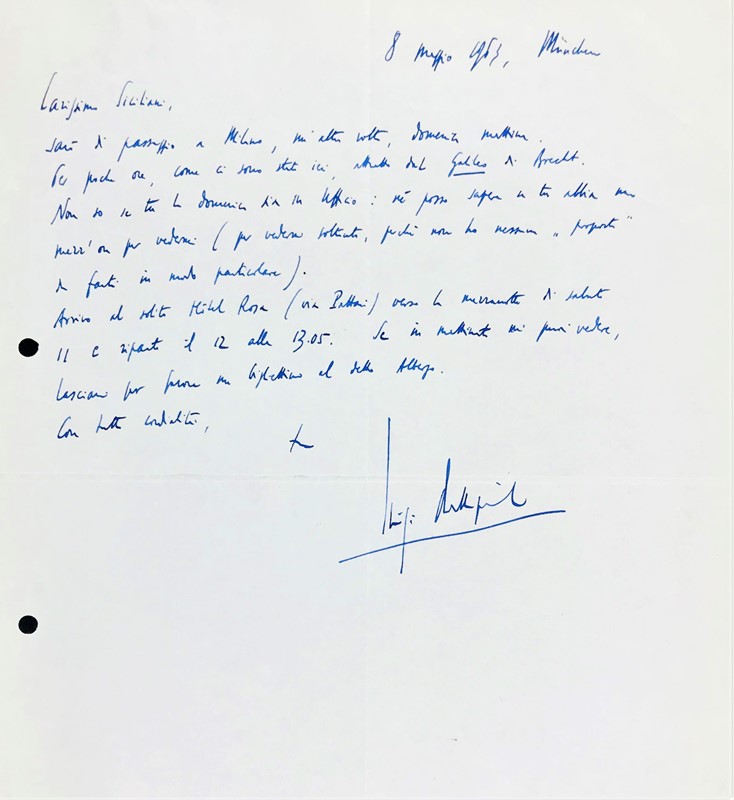 8 maggio 1963, München
Carissimo Siciliani,
sarò di passaggio a Milano, un'altra volta, domenica mattina.
Per poche ore, come ci sono stato ieri, attratto dal Galileo di Brecht.
Non so se tu la domenica sia in Ufficio: né posso sapere se tu abbia una
mezz'ora per vedermi (per vederci soltanto, perché non ho nessuna „proposta"
da farti in modo particolare).
Arrivo al solito Hôtel Rosa (via Pattari) verso la mezzanotte di sabato
11 e riparto il 12 alle 13.05. Se in mattinata mi puoi vedere,
lasciami per favore un bigliettino al detto Albergo.
Con tutta cordialità,
tuo
Luigi Dallapiccola